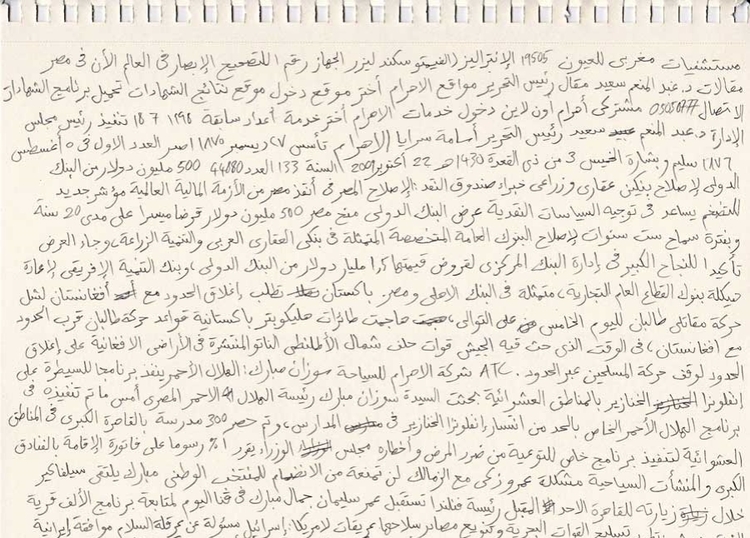 مستشفيات مغربى للعيون 19505 الإنتراليز (الفيمتو سكند ليزر الجهاز رقم 1 لتصحيح الإبصار فى العالم الأن فى مصر
مقالات د. عبد المنعم سعيد مقال رئيس التحرير مواقع الاهرام أختر موقع دخول موقع نتائج الشهادات تحميل برنامج الشهادات
الاتصال 07770505 مشتركى أهرام اون لاين دخول خدمات الاهرام أختر خدمة أعداد سابقة 1298 7 18 تنفيذ رئيس مجلس
الإدارة د. عبد المنعم سعيد رئيس التحرير أسامة سرايا (الاهرام تأسس 27 ديسمبر 1875 اصدر العدد الاول فى 5 أغسطس
1876 سليم وبشارة الخميس 3 من ذى القعدة 1430 هـ 22 أكتوبر 2009 السنة 133 العدد 44880 500 مليون دولار من البنك
الدولى لإصلاح بنكين عقارى وزراعى خبراء صندوق النقد: الإصلاح المصرفى أنقذ مصر من الأزمة المالية العالمية مؤشر جديد
للتضخم يساعد فى توجيه السياسات النقدية عرض البنك الدولى منح مصر 500 مليون دولار قرضا ميسرا على مدى 20 سنة
وبفترة سماح ست سنوات لإصلاح البنوك العامة المتخصصة المتمثلة فى بنكى العقارى العربى والتنمية الزراعة، وجاء العرض
تأكيدا للنجاح الكبير فى إدارة البنك المركزى لقروض قيمتها 1ر1 مليار دولار من البنك الدولى، وبنك التنمية الإفريقى لإعادة
هيكلة بنوك القطاع العام التجارية، متمثلة فى البنك الاهلى ومصر. باكستان تطلب إغلاق الحدود مع أفغانستان لشل
حركة مقاتلى طالبان لليوم الخامس على التوالى، هاجمت طائرات هليكوبتر باكستانية قواعد حركة طالبان قرب الحدود
مع افغانستان، فى الوقت الذى حث فيه الجيش قوات حلف شمال الأطلنطى الناتو المنتشرة فى الأراضى الافغانية على إغلاق
الحدود لوقف حركة المسلحين عبر الحدود. ATC شركة الاهرام للسياحة سوزان مبارك: الهلال الأحمر ينفذ برنامجا للسيطرة على
إنفلونزا الخنازير بالمناطق العشوائية بحثت السيدة سوزان مبارك رئيسة الهلال الاحمر المصرى أمس ما تم تنفيذه فى
برنامج الهلال الأحمر الخاص بالحد من انتشار إنفلونزا الخنازير فى المدارس، وتم حصر 300 مدرسة بالقاهرة الكبرى فى المناطق
العشوائية لتنفيذ برنامج خاص للتوعية من ضرر المرض وأخطاره مجلس الوزراء يقرر 1٪ رسوما على فاتورة الإقامة بالفنادق
الكبرى والمنشآت السياحية مشكلة عمرو زكى مع الزمالك لن تمنعه من الانضمام للمنتخب الوطنى مبارك يلتقى سيلفاكير
خلال زيارته للقاهرة الاحد المقبل رئيسة فنلندا تستقبل عمر سليمان جمال مبارك فى قنا اليوم لمتابعة برنامج الألف قرية
تسليح القوات البحرية وتنويع مصادر سلاحها عريقات لامريكا: إسرائيل مسئولة عن عرقلة السلام موافقة إيرانية